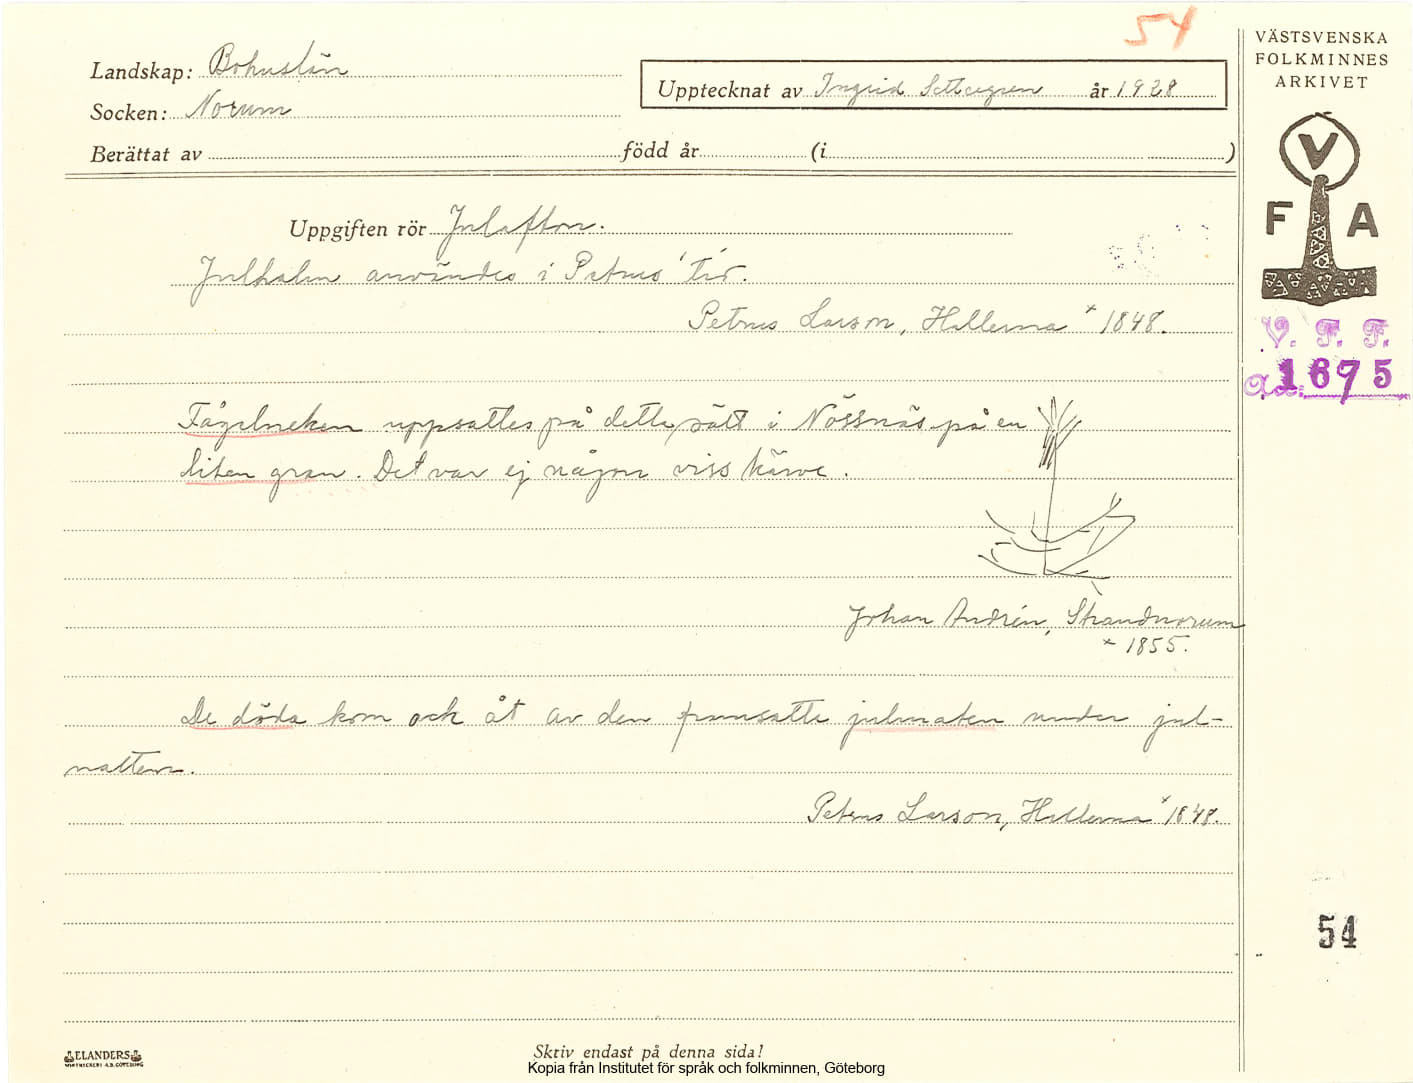 54
VÄSTSVENSKA
FOLKMINNES
ARKIVET
Landskap: Bohuslän
Upptecknat av Ingrid år 1928
Socken: Norum
Berättat av född år (i )
V
F A
Uppgiften rör Julafton.
Julhalm användes i Petrus' tid.
Petrus Larson, Hallerna * 1848.
V. F. F.
1675
Fågelneken uppsattes på detta sätt i Nössnäs på en
liten gran. Det var ej någon viss kärve.
Johan Andrén, Strandnorum
* 1855.
De döda kom och åt av den framsatta julmaten under jul-
natten.
Petrus Larson, Hallerna * 1848.
54
ELANDERS
Skriv endast på denna sida!
Kopia från Institutet för språk och folkminnen, Göteborg